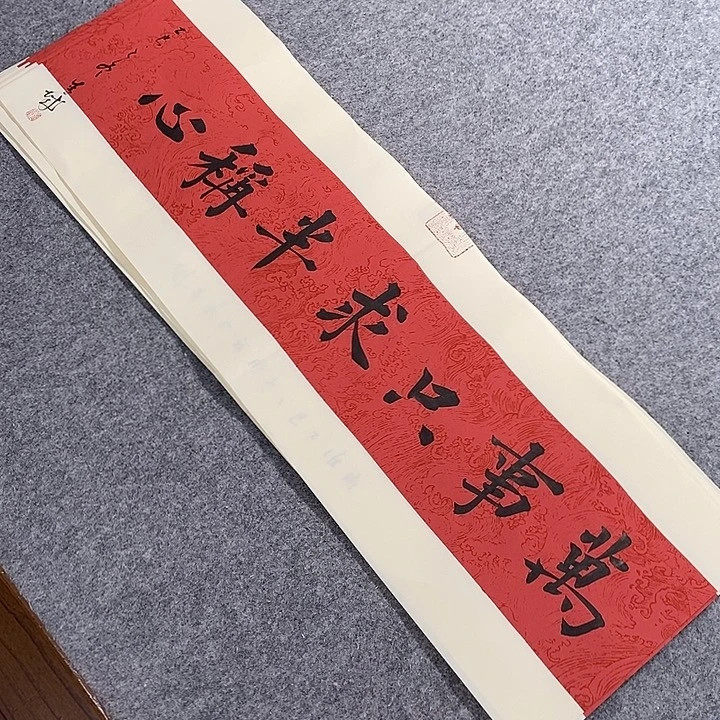 萬事只求半稱心